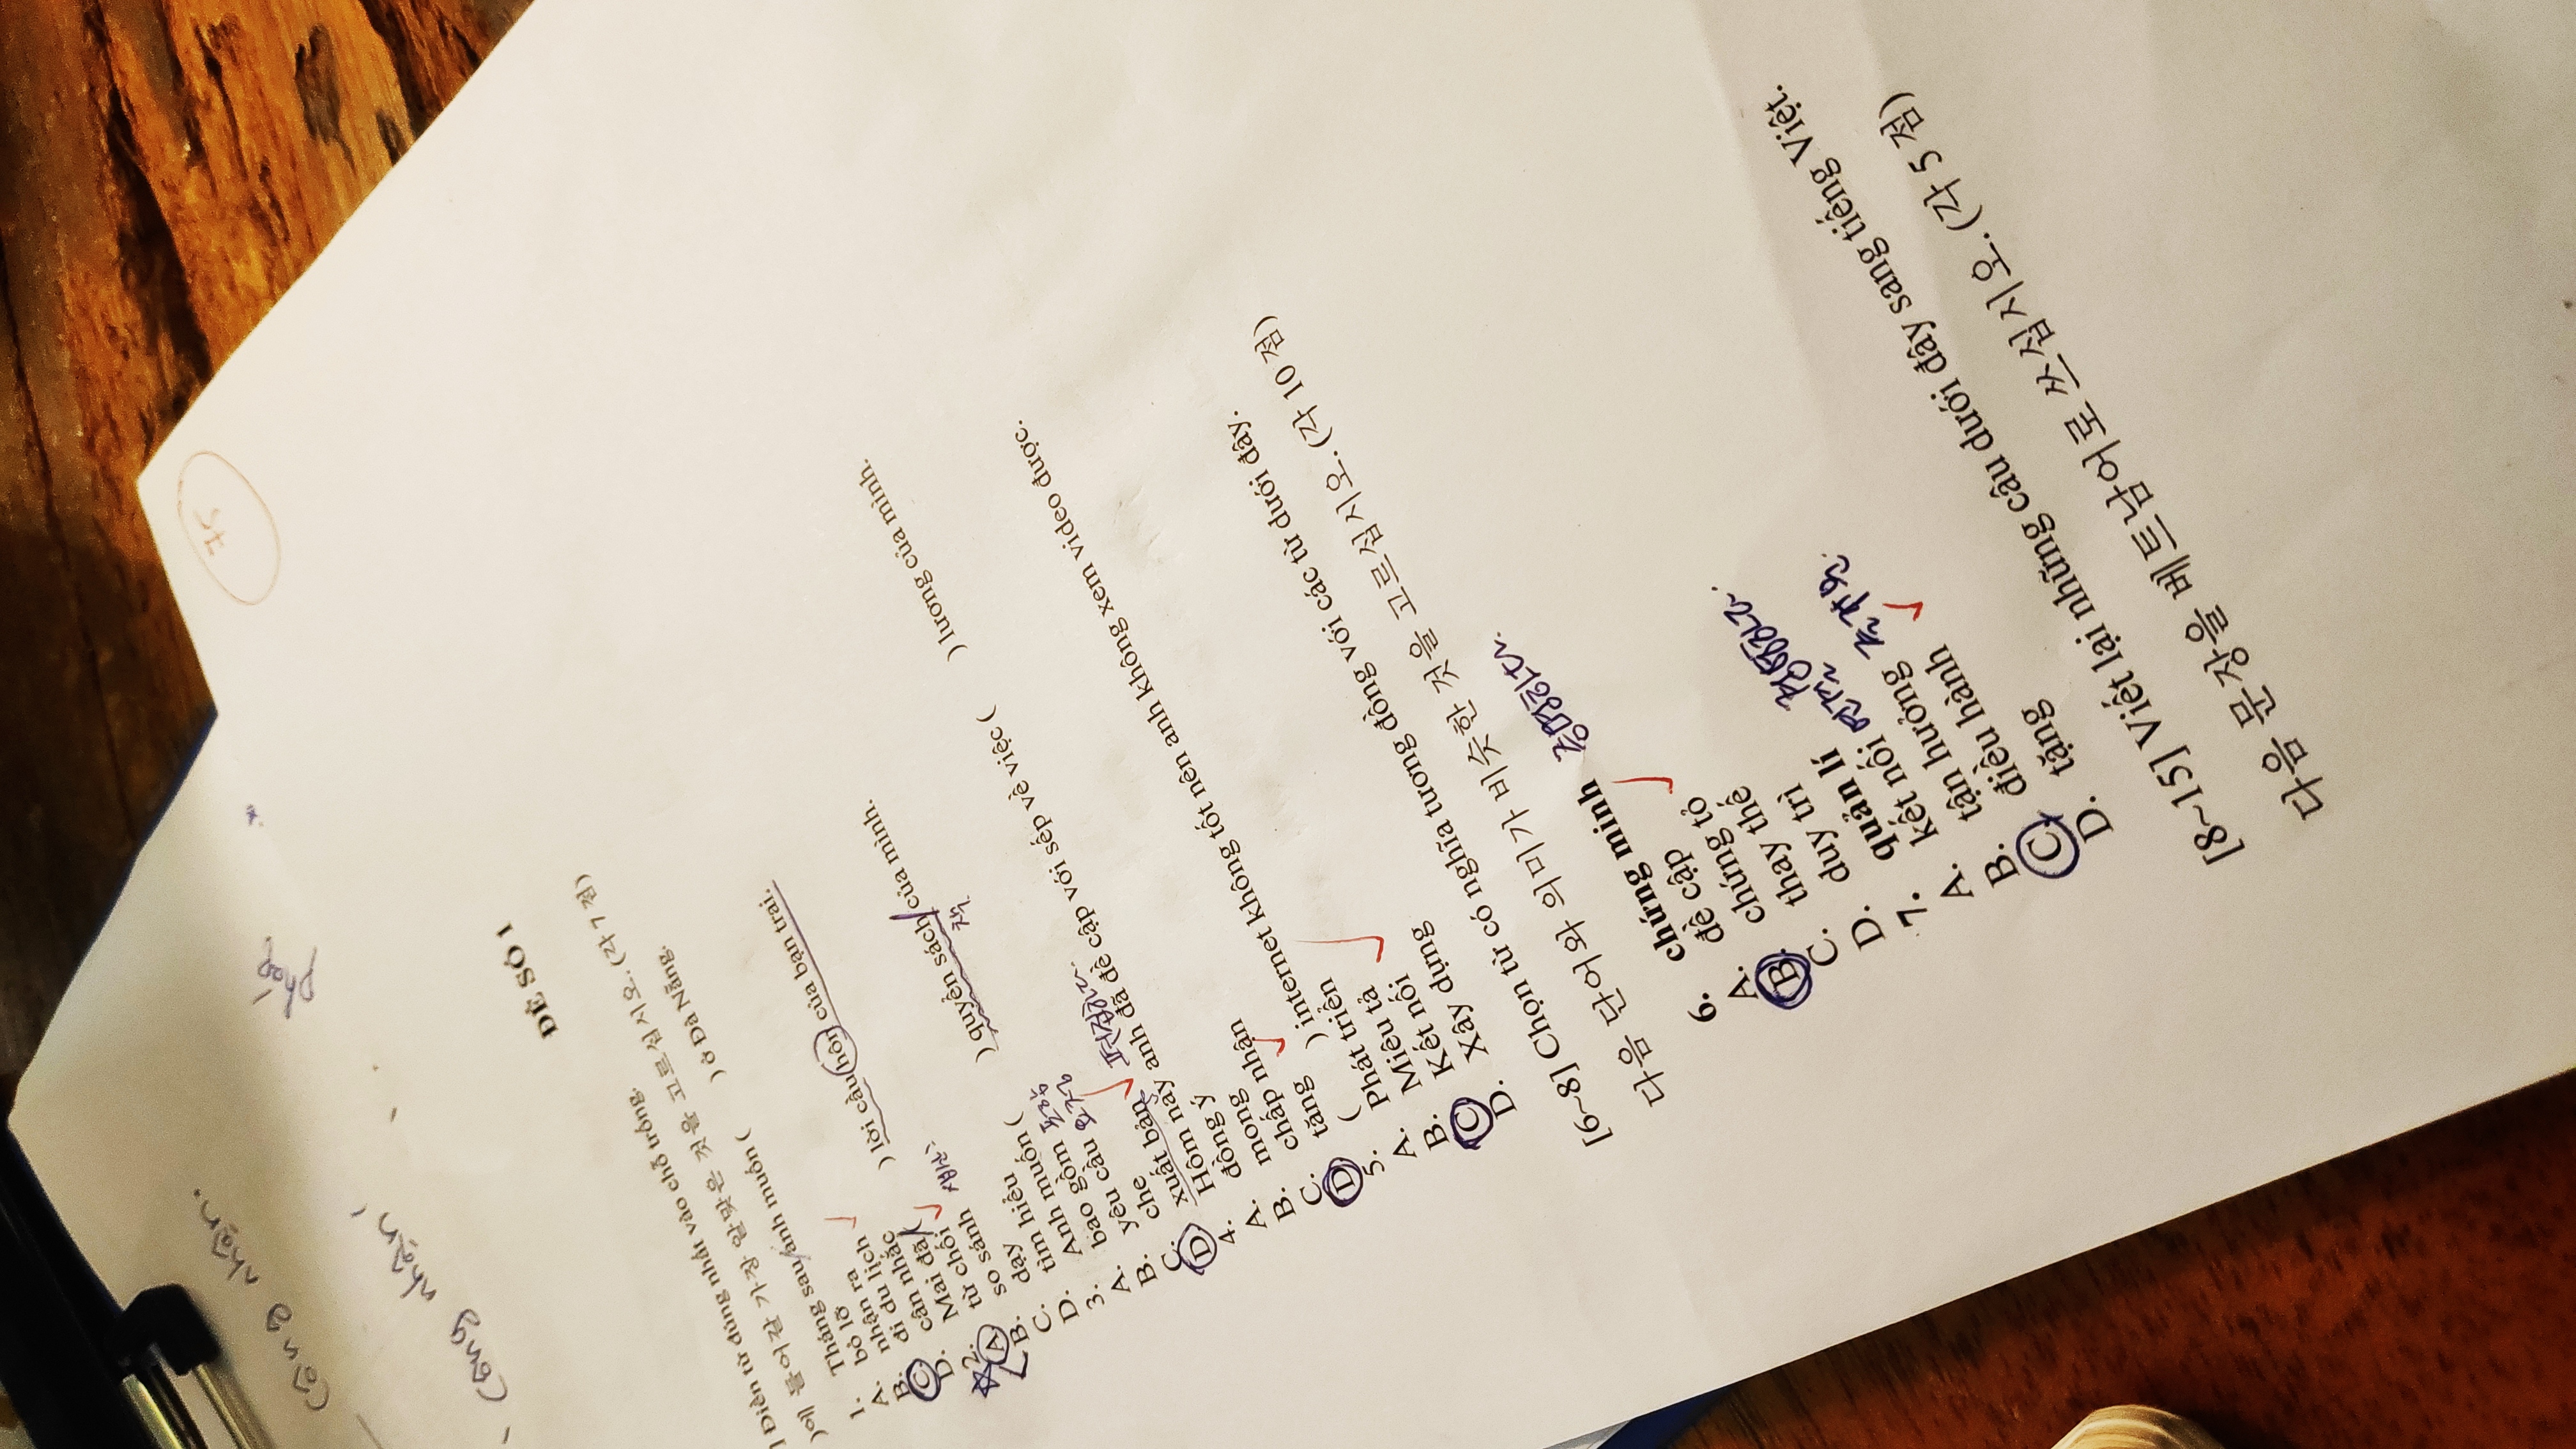 Công nhận.
Công nhận
pháp
ĐỀ SỐ 1
] Điền từ đúng nhất vào chỗ trống.
)에 들어갈 가장 알맞은 것을 고르십시오.. (각 7 점)
1. Tháng sau anh muốn ( ) ở Đà Nẵng.
A. bỏ lỡ
B. nhận ra
C. đi du lịch
D. cân nhắc
2. Mai đã ( ) lời cầu hôn của bạn trai.
A. từ chối
B. so sánh
C. dạy
D. tìm hiểu
3. Anh muốn ( ) quyển sách của mình.
책
A. bao gồm 포함
B. yêu cầu 요구
C. che
D. xuất bản
4. Hôm nay anh đã đề cập với sếp về việc ( ) lương của mình.
A. đồng ý
B. mong
C. chấp nhận
D. tăng
5. ( ) internet không tốt nên anh không xem video được.
A. Phát triển
B. Miêu tả
C. Kết nối
D. Xây dựng
[6~8] Chọn từ có nghĩa tương đồng với các từ dưới đây.
다음 단어와 의미가 비슷한 것을 고르십시오. (각 10 점)
6. chứng minh
A. đề cập
B. chứng tỏ
C. thay thế
D. duy trì
7. quản lí
A. kết nối
B. tận hưởng
C. điều hành
D. tặng
[8~15] Viết lại những câu dưới đây sang tiếng Việt.
다음 문장을 베트남어로 쓰십시오. (각 5 점)